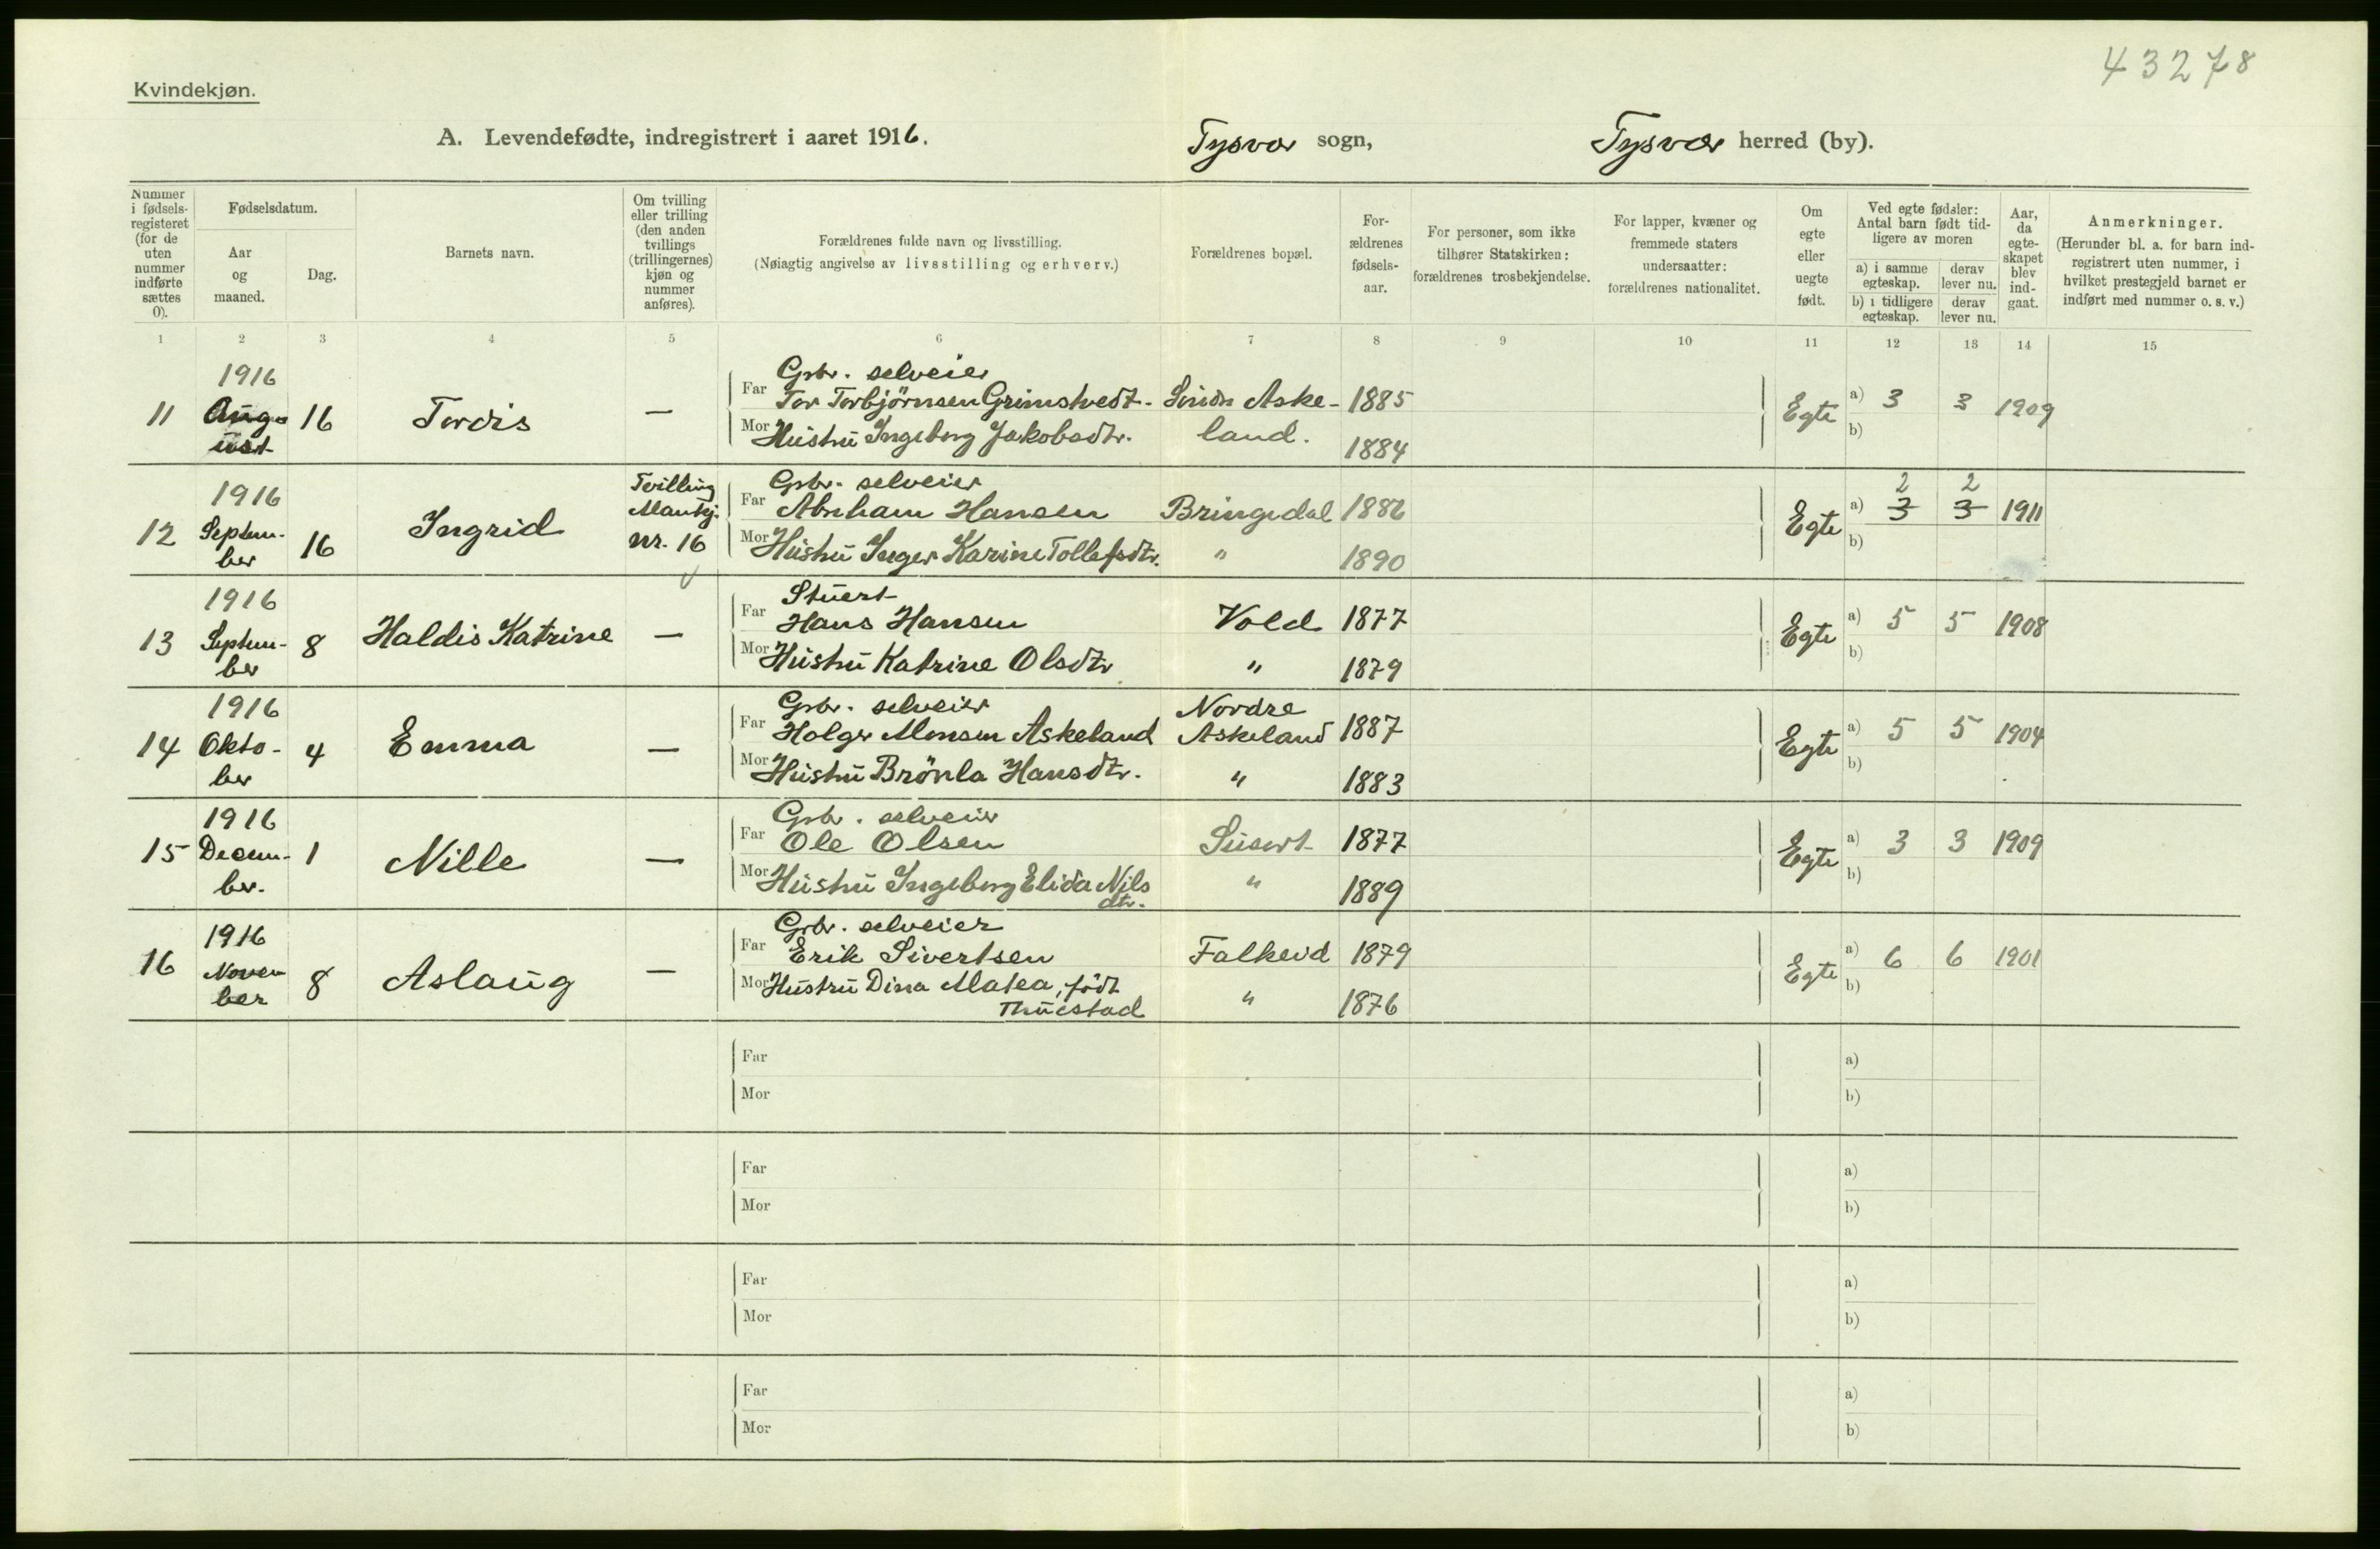 43278
Kvindekjøn.
A. Levendefødte, indregistrert i aaret 1916. Tysvær sogn, Tysvær herred (by).
Nummer i fødsels-registeret (for de uten nummer indførte sættes 0).
Fødselsdatum.
Aar og maaned.
Dag.
Barnets navn.
Om tvilling eller trilling (den anden tvillings (trillingernes) kjøn og nummer anføres).
Forældrenes fulde navn og livsstilling.
(Nøiagtig angivelse av livsstilling og erhverv.)
Forældrenes bopæl.
For-ældrenes fødsels-aar.
For personer, som ikke tilhører Statskirken: forældrenes trosbekjendelse.
For lapper, kvæner og fremmede staters undersaatter: forældrenes nationalitet.
Om egte eller uegte født.
Ved egte fødsler: Antal barn født tid-ligere av moren
a) i samme egteskap.
derav lever nu.
b) i tidligere egteskap.
derav lever nu.
Aar, da egte-skapet blev ind-gaat.
Anmerkninger.
(Herunder bl. a. for barn ind-registrert uten nummer, i hvilket prestegjeld barnet er indført med nummer o. s. v.)
1 2 3 4 5 6 7 8 9 10 11 12 13 14 15
1916 Gbr. selveier
11 August 16 Tordis — Far Tor Torbjörnsen Grimstvedt. Söndre Aske- 1885 Egte a) 3 3 1909
Mor Hustru Ingeborg Jakobsdtr. land. 1884 b)
1916 Tvilling Gbr. selveier 2 2
12 September 16 Ingrid Mankj. nr. 16 Far Abraham Hansen Bringedal 1886 Egte a) 3 3 1911
Mor Hustru Inger Karine Tollefsdtr. " 1890 b)
1916 Stuert
13 September 8 Haldis Katrine — Far Hans Hansen Vold 1877 Egte a) 5 5 1908
Mor Hustru Katrine Olsdtr " 1879 b)
1916 Gbr. selveier Nordre
14 Oktober 4 Emma — Far Holger Monsen Askeland Askeland 1887 Egte a) 5 5 1904
Mor Hustru Brönla Hansdtr. " 1883 b)
1916 Gbr. selveier
15 December. 1 Nille — Far Ole Olsen 1877 Egte a) 3 3 1909
Mor Hustru Ingeborg Elida Nils dtr. " 1889 b)
1916 Grbr. selveier
16 November 8 Aslaug — Far Erik Sivertsen Falkeid 1879 Egte a) 6 6 1901
Mor Hustru Dina Matea, født Thuestad " 1876 b)
Far a)
Mor b)
Far a)
Mor b)
Far a)
Mor b)
Far a)
Mor b)